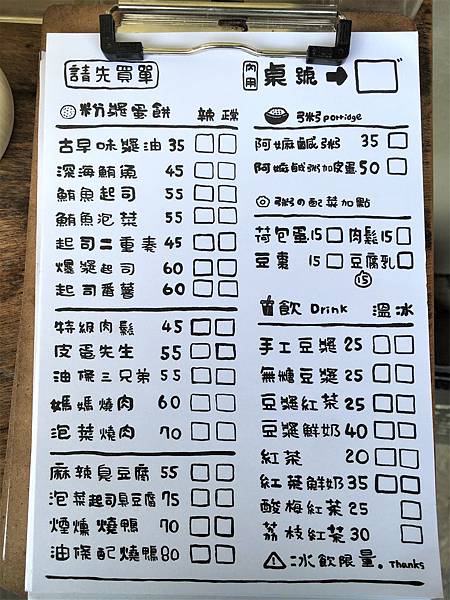 請先買單
內用 桌號 →
粉漿蛋餅 辣 蔬
古早味漿油 35
深海鮪魚 45
鮪魚起司 55
鮪魚泡菜 55
起司二重奏 45
爆漿起司 60
起司番薯 60
特級肉鬆 45
皮蛋先生 55
油條三兄弟 55
媽媽燒肉 60
泡菜燒肉 70
麻辣臭豆腐 55
泡菜起司臭豆腐 75
煙燻燒鴨 70
油條配燒鴨 80
粥 porridge
阿嬤鹹粥 35
阿嬤鹹粥加皮蛋 50
粥の配菜加點
荷包蛋 15 肉鬆 15
豆棗 15 豆腐乳
15
飲 Drink 溫 冰
手工豆漿 25
無糖豆漿 25
豆漿紅茶 25
豆漿鮮奶 40
紅茶 20
紅茶鮮奶 35
酸梅紅茶 25
荔枝紅茶 30
冰飲限量。Thanks